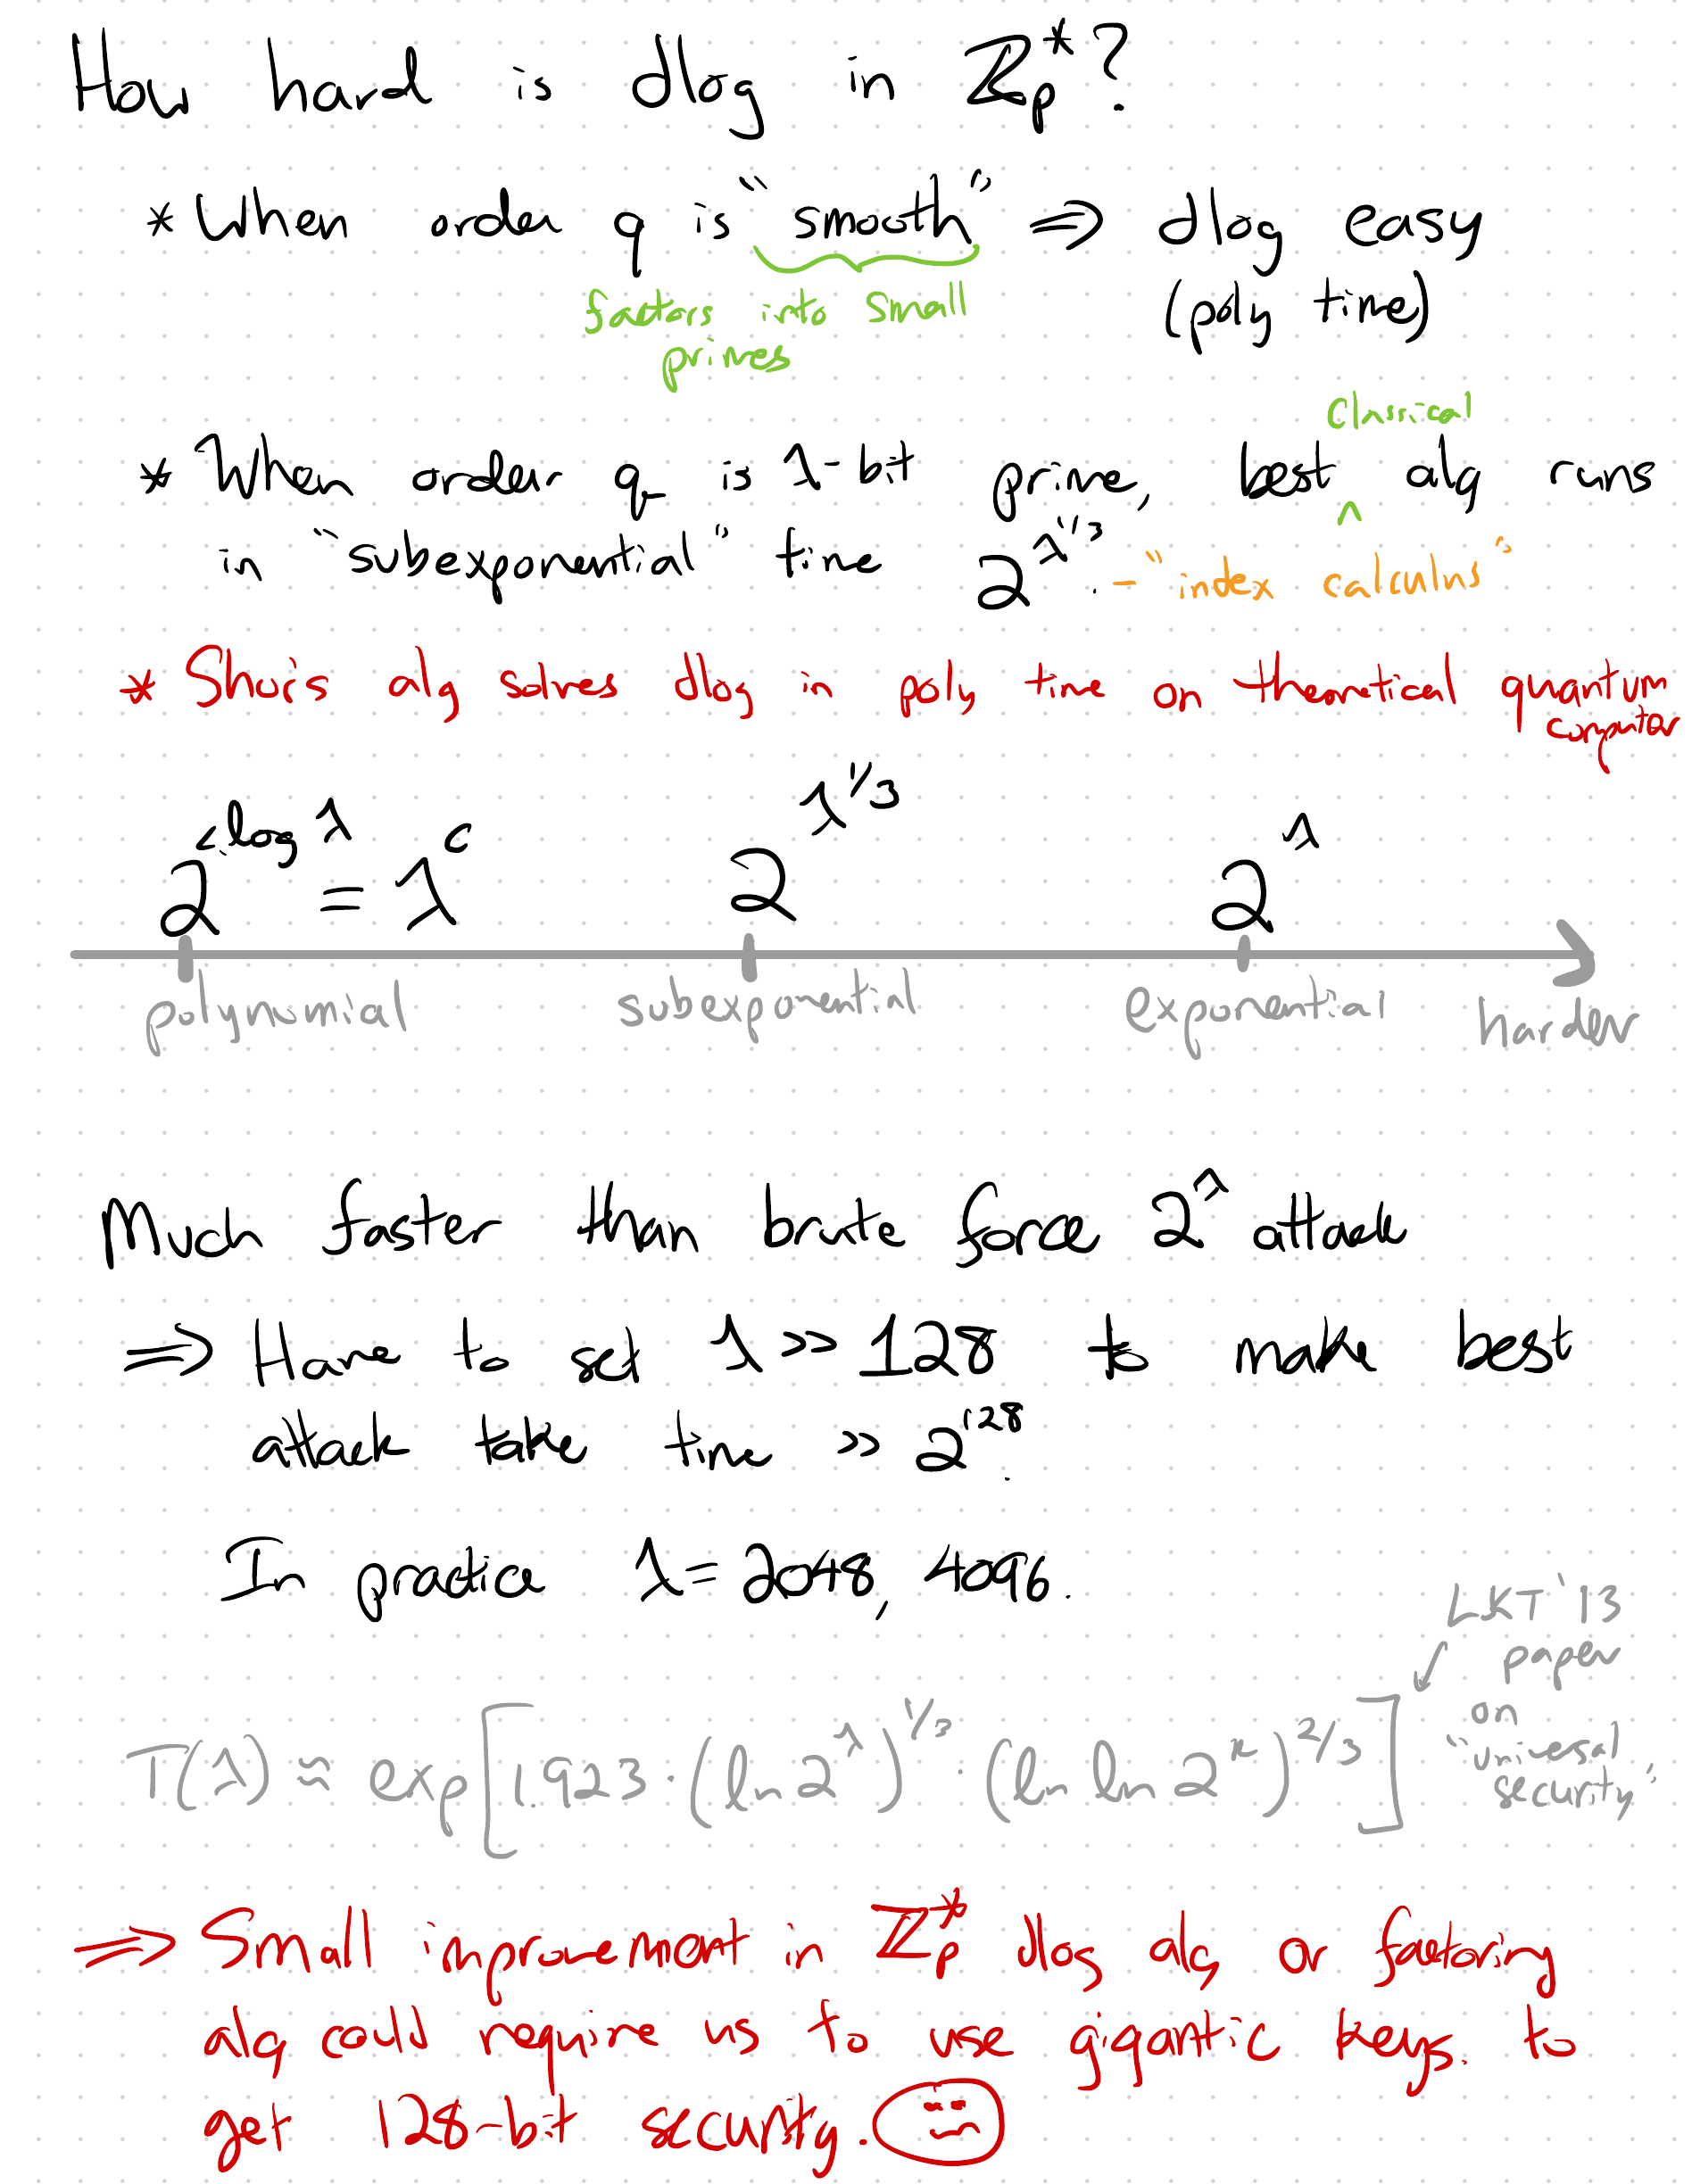 How hard is dlog in ℤₚ*?
* When order q is "smooth" ⇒ dlog easy
factors into small
primes
(poly time)
classical
* When order q is λ-bit prime, best ^ alg runs
in "subexponential" time 2^{λ^{1/3}}. - "index calculus"
* Shor's alg solves dlog in poly time on theoretical quantum
computer
2^{c log λ} = λ^c 2^{λ^{1/3}} 2^λ
polynomial subexponential exponential harder
Much faster than brute force 2^λ attack
⇒ Have to set λ >> 128 to make best
attack take time >> 2^{128}.
In practice λ = 2048, 4096.
LKT '13
paper
on
"universal
security"
T(λ) ≈ exp[1.923·(ln 2^λ)^{1/3}·(ln ln 2^n)^{2/3}]
⇒ Small improvement in ℤₚ* dlog alg or factoring
alg could require us to use gigantic keys to
get 128-bit security.